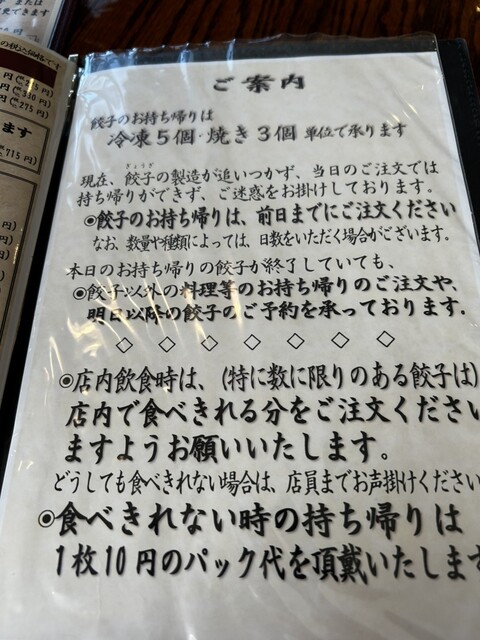 ご案内
餃子のお持ち帰りは
冷凍5個・焼き3個 単位で承ります
現在、餃子の製造が追いつかず、当日のご注文では
持ち帰りができず、ご迷惑をお掛けしております。
◉餃子のお持ち帰りは、前日までにご注文ください
なお、数量や種類によっては、日数をいただく場合がございます。
本日のお持ち帰りの餃子が終了していても、
◉餃子以外の料理等のお持ち帰りのご注文や、
明日以降の餃子のご予約を承っております。
◇ ◇ ◇ ◇ ◇ ◇ ◇
◉店内飲食時は、(特に数に限りのある餃子は)
店内で食べきれる分をご注文ください
ますようお願いいたします。
どうしても食べきれない場合は、店員までお声掛けください
◉食べきれない時の持ち帰りは
1枚10円のパック代を頂戴いたします